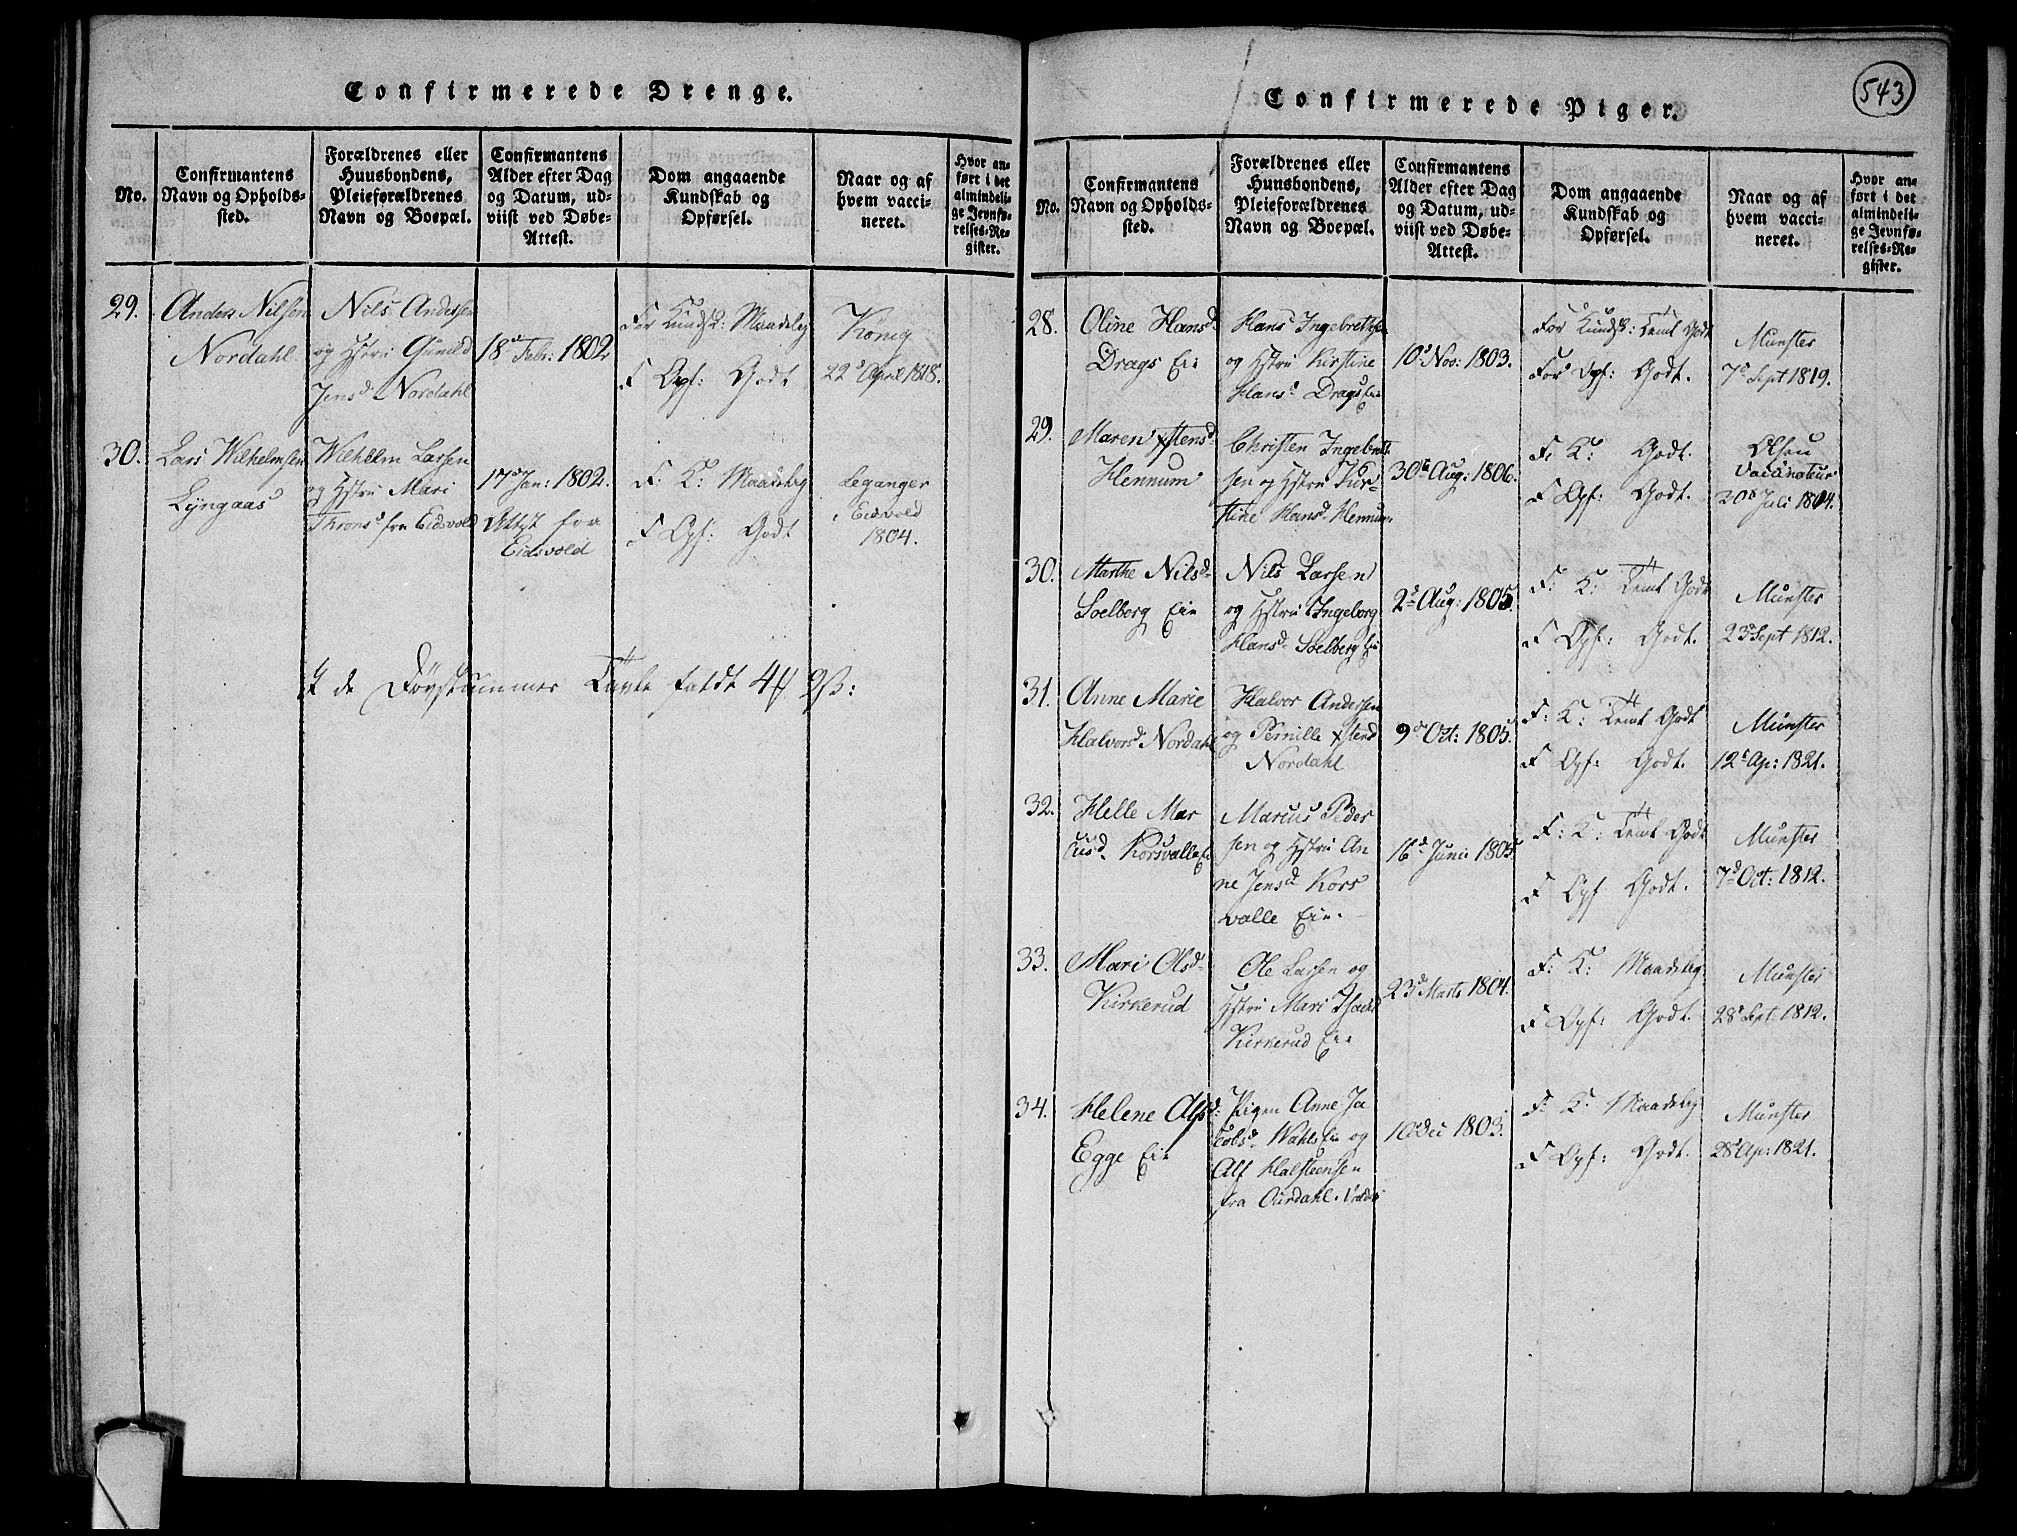 Confirmerede Drenge.
No.
Confirmantens
Navn og Opholds-
sted.
Forældrenes eller
Huusbondens,
Pleieforældrenes
Navn og Boepæl.
Confirmantens
Alder efter Dag
og Datum, ud-
viist ved Døbe-
Attest.
Dom angaaende
Kundskab og
Opførsel.
Naar og af
hvem vacci-
neret.
Hvor an-
ført i det
almindeli-
ge Jevnfø-
relses-Re-
gister.
29.
Anders Nilsen
Nordahl
Nils Andersen
og Hstru Gunild
Jensd Nordahl
18d Febr: 1802
For Kundsk: Maadelig
F Opf: Godt
Konig
22d April 1818.
30.
Lars Wilhelmsen
Lyngaas
Wilhelm Larsen
og Hstru Mari
Thronsd fra Eidsvold
17d Jan: 1802.
Attest fra
Eidsvold
F: K: Maadelig
F Opf: Godt
Leganger
Eidsvold
1804.
I de Tavle faldt 4 2ß:
543
Confirmerede Piger.
No.
Confirmantens
Navn og Opholds-
sted.
Forældrenes eller
Huusbondens,
Pleieforældrenes
Navn og Boepæl.
Confirmantens
Alder efter Dag
og Datum, ud-
viist ved Døbe-
Attest.
Dom angaaende
Kundskab og
Opførsel.
Naar og af
hvem vacci-
neret.
Hvor an-
ført i det
almindeli-
ge Jevnfø-
relses-Re-
gister.
28.
Oline Hansd
Drags Eie
Hans Ingebretsen
og Hstru Kirstine
Hansd Drags Eie
10d Nov: 1803.
For Kundsk: Temt Godt
For Opf: Godt.
Munster
7d Sept 1819.
29.
Maren Xstensd
Hennum
Christen Ingebret-
sen og Hstru Kir-
stine Hansd Hennum
30te Aug: 1806.
F: K: Godt.
F Opf: Godt.
Olsen
Vaccinateur
30d Juli 1814.
30.
Marthe Nilsd
Solberg Eie
Nils Larsen
og Hstru Ingeborg
Hansd Solberg Eie
2d Aug: 1805.
F: K: Temt Godt
F Opf: Godt.
Munster
23d Sept 1812.
31.
Anne Marie
Halvorsd Nordahl
Halvor Andersen
og Pernille Xstensd
Nordahl
9d Oct: 1805.
F: K: Temt Godt
F Opf: Godt.
Munster
12d Ap: 1821.
32.
Helle Mar
iusd Korsvalle Eie
Marius Peder
sen og Hstru An
ne Jensd Kors
valle Eie.
16d Juni 1805
F: K: Temt Godt
F Opf Godt.
Munster
7d Oct: 1812.
33.
Mari Olsd
Kirkerud
Ole Larsen og
Hstru Mari
Kirkerud Eie
23d Marts 1804.
F: K: Maadelig
F Opf: Godt.
Munster
28d Sept 1812.
34.
Helene Alfsd
Egge Eie
Pigen Anne Ja
cobsd Wahls Eie og
Alf Halsteensen
fra Ourdahl i Valdres
10 Dec 1803.
F: K: Maadelig
F Opf: Godt.
Munster
28d Ap: 1821.